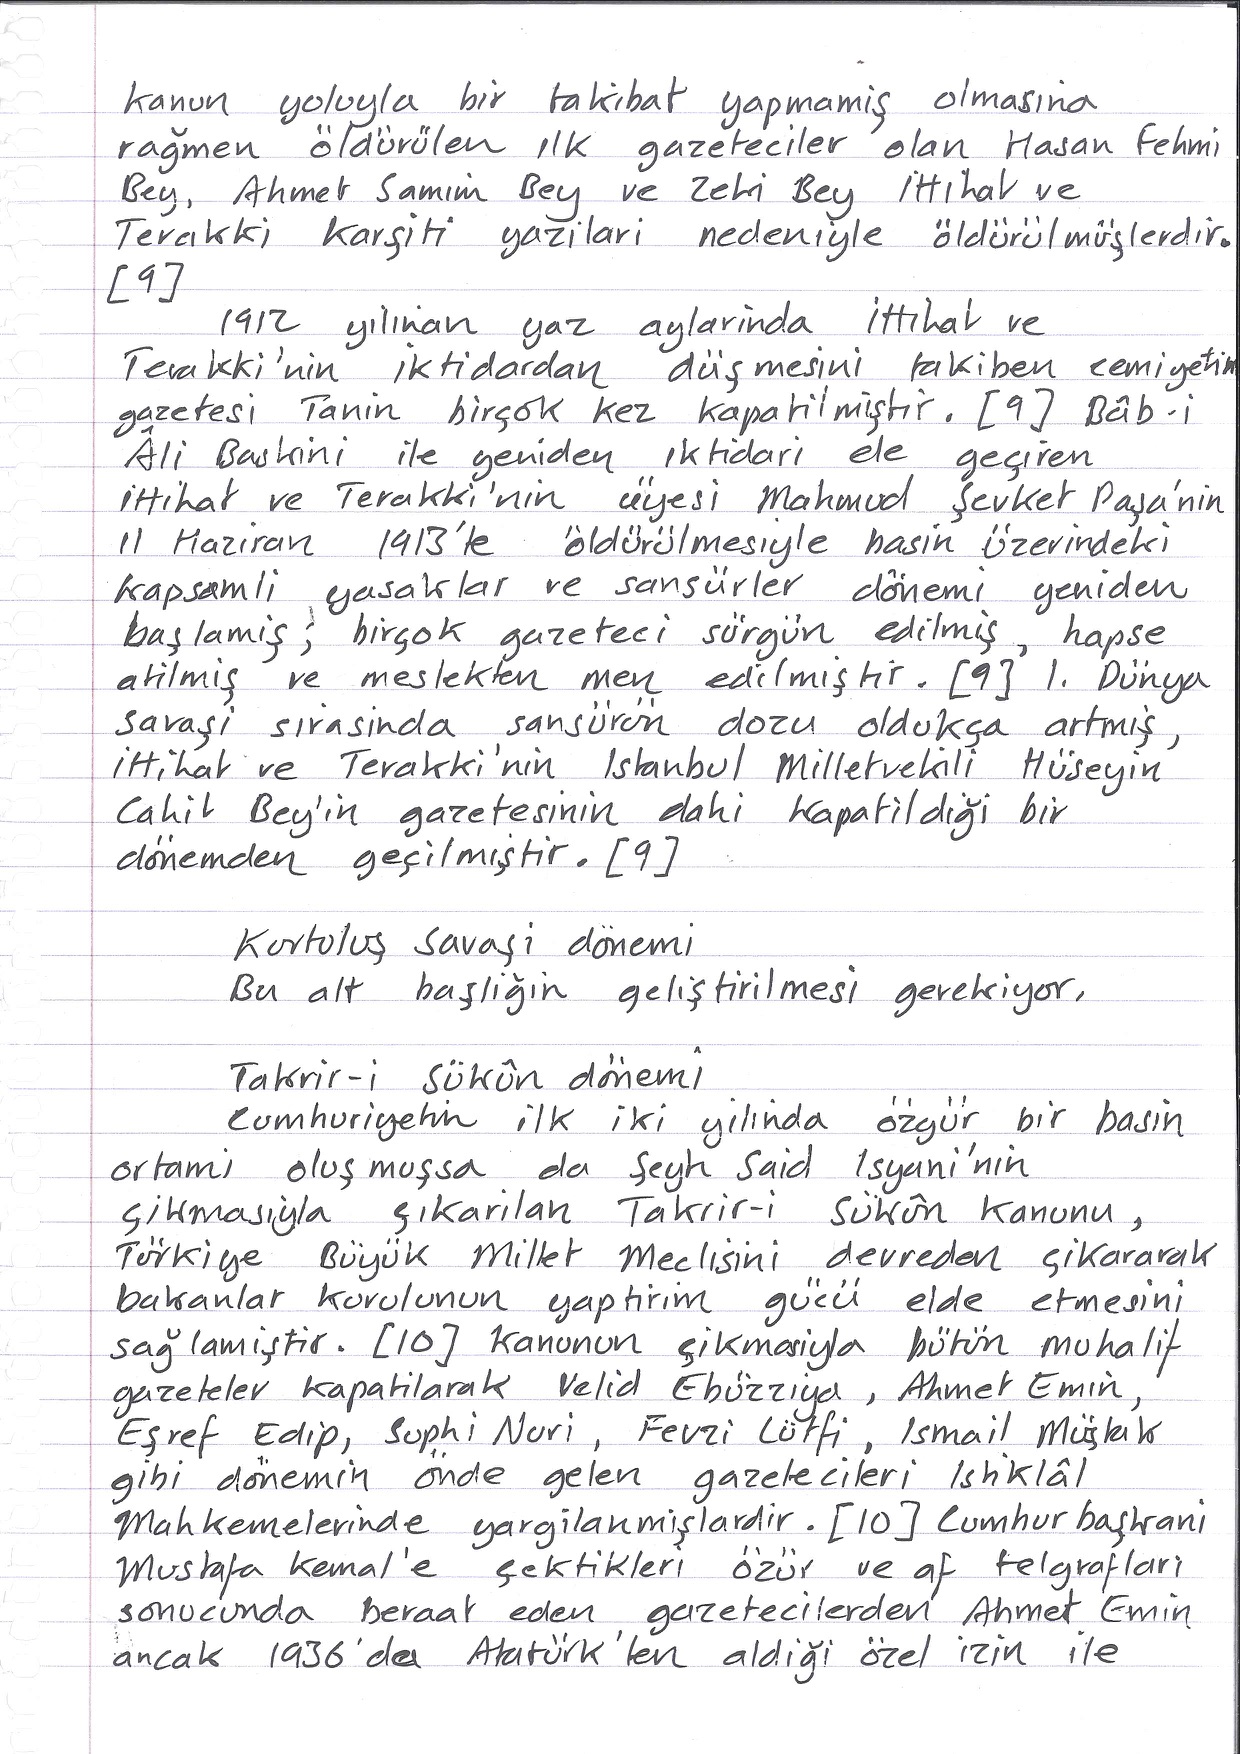 kanun yoluyla bir takibat yapmamiş olmasina
rağmen öldürülen ilk gazeteciler olan Hasan Fehmi
Bey, Ahmet Samim Bey ve Zeki Bey İttihat ve
Terakki karşiti yazilari nedeniyle öldürülmüşlerdir.
[9]
1912 yilinan yaz aylarinda İttihat ve
Terakki'nin iktidardan düşmesini takiben cemiyetin
gazetesi Tanin birçok kez kapatilmiştir. [9] Bâb-i
Âli Baskini ile yeniden iktidari ele geçiren
İttihat ve Terakki'nin üyesi Mahmud Şevket Paşa'nin
11 Haziran 1913'te öldürülmesiyle basin üzerindeki
kapsamli yasaklar ve sansürler dönemi yeniden
başlamiş; birçok gazeteci sürgün edilmiş, hapse
atilmiş ve meslekten men edilmiştir. [9] I. Dünya
Savaşi sirasinda sansürün dozu oldukça artmiş,
İttihat ve Terakki'nin Istanbul Milletvekili Hüseyin
Cahit Bey'in gazetesinin dahi kapatildiği bir
dönemden geçilmiştir. [9]
Kurtuluş Savaşi dönemi
Bu alt başliğin geliştirilmesi gerekiyor.
Takrir-i Sükûn dönemi
Cumhuriyetin ilk iki yilinda özgür bir basin
ortami oluşmuşsa da Şeyh Said Isyani'nin
çikmasiyla çikarilan Takrir-i Sükûn Kanunu,
Türkiye Büyük Millet Meclisini devreden çikararak
bakanlar kurulunun yaptirim gücü elde etmesini
sağlamiştir. [10] Kanunun çikmasiyla bütün muhalif
gazeteler kapatilarak Velid Ebüzziya, Ahmet Emin,
Eşref Edip, Suphi Nuri, Fevzi Lütfi, Ismail Müştak
gibi dönemin önde gelen gazetecileri Istiklâl
Mahkemelerinde yargilanmişlardir. [10] Cumhurbaşkani
Mustafa Kemal'e çektikleri özür ve af telgraflari
sonucunda beraat eden gazetecilerden Ahmet Emin
ancak 1936'da Atatürk'ten aldiği özel izin ile